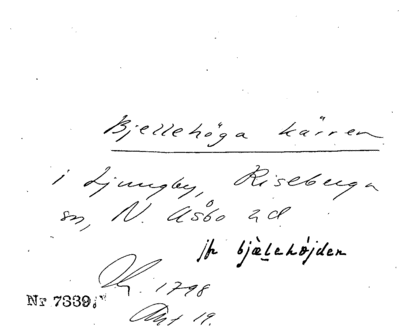 Bjellehöga kärren
i Ljungby, Riseberga
sn, N. Åsbo hd
jfr bjälehöjden
1798
Nr 7339.
Akt 19.